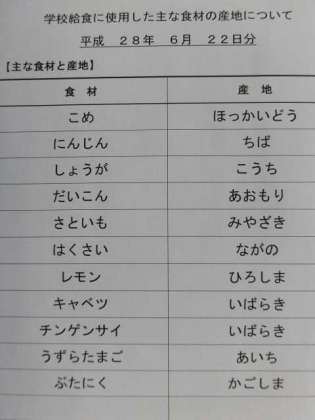 学校給食に使用した主な食材の産地について
平成 28年 6月 22日分
【主な食材と産地】
食 材 産 地
こめ ほっかいどう
にんじん ちば
しょうが こうち
だいこん あおもり
さといも みやざき
はくさい ながの
レモン ひろしま
キャベツ いばらき
チンゲンサイ いばらき
うずらたまご あいち
ぶたにく かごしま